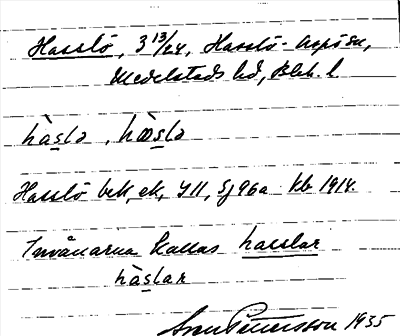 Hasslö, 3 13/24, Hasslö-Aspö sn,
Medelstads hd, Blek. l.
hàslo, hòslo
Hasslö bek, ek, JII, Sj 96a kb 1914.
Invånarna kallas hasslar
hàslar
Sven Pettersson 1935